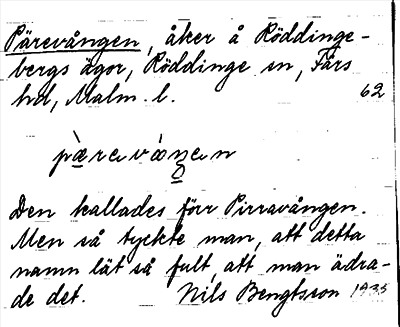 Pärevången, åker å Röddinge-
bergs ägor, Röddinge sn, Färs
hd, Malm. l. 62
pærevåŋen
Den kallades förr Pirravången.
Men så tyckte man, att detta
namn lät så fult, att man ädra-
de det. Nils Bengtsson 1935